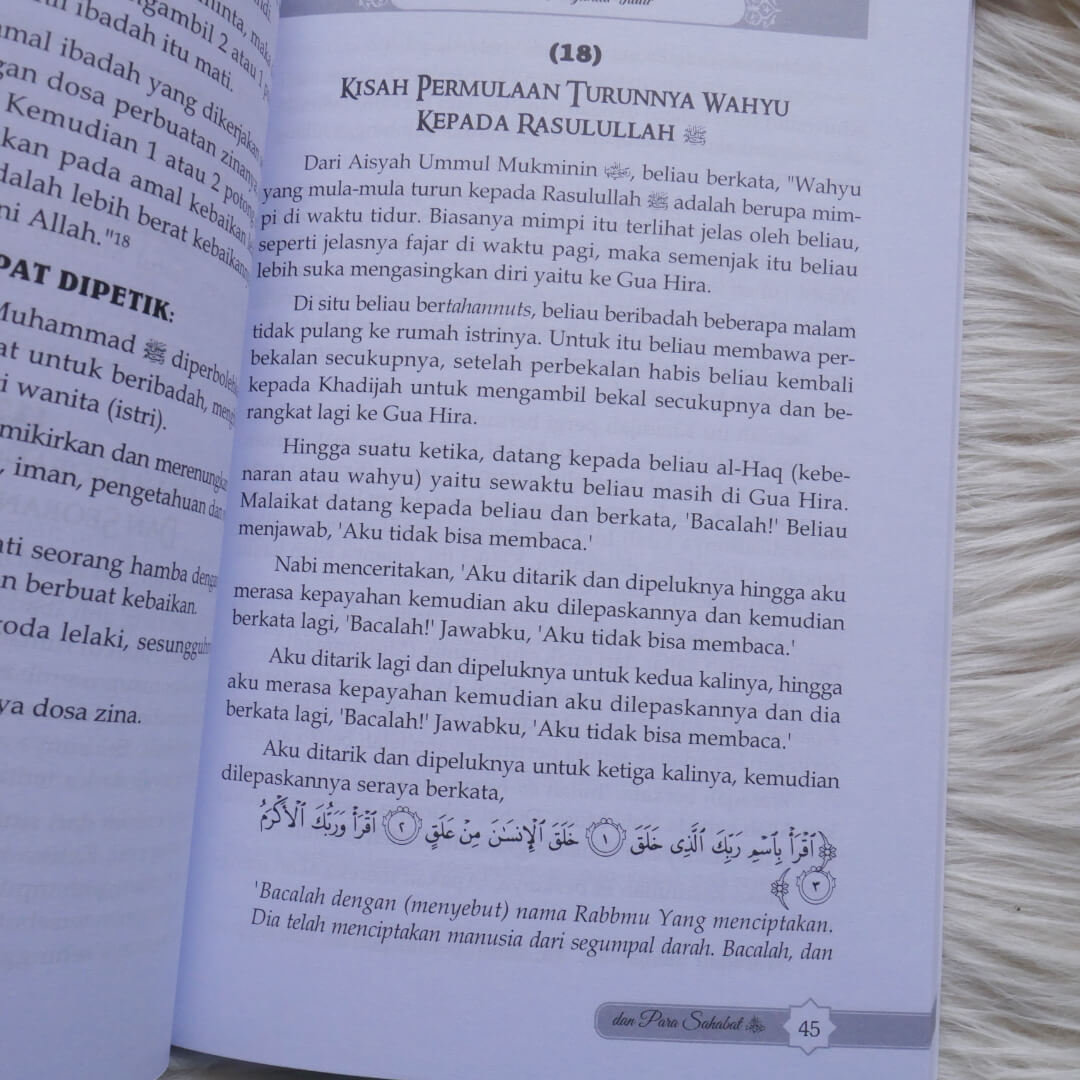 minta, maka
mengambil 2 atau 1
ibadah itu mati.
amal ibadah yang dikerjakan
dosa perbuatan zinanya,
Kemudian 1 atau 2 potong
pada amal kebaikan
adalah lebih berat kebaikannya
Allah."18
DIPETIK:
Muhammad ﷺ
untuk beribadah,
wanita (istri).
dan merenungkan
, iman, pengetahuan dan
seorang hamba dengan
berbuat kebaikan.
lelaki,
dosa zina.
(18)
KISAH PERMULAAN TURUNNYA WAHYU
KEPADA RASULULLAH ﷺ
Dari Aisyah Ummul Mukminin, beliau berkata, "Wahyu
yang mula-mula turun kepada Rasulullah ﷺ adalah berupa mim-
pi di waktu tidur. Biasanya mimpi itu terlihat jelas oleh beliau,
seperti jelasnya fajar di waktu pagi, maka semenjak itu beliau
lebih suka mengasingkan diri yaitu ke Gua Hira.
Di situ beliau bertahannuts, beliau beribadah beberapa malam
tidak pulang ke rumah istrinya. Untuk itu beliau membawa per-
bekalan secukupnya, setelah perbekalan habis beliau kembali
kepada Khadijah untuk mengambil bekal secukupnya dan be-
rangkat lagi ke Gua Hira.
Hingga suatu ketika, datang kepada beliau al-Haq (kebe-
naran atau wahyu) yaitu sewaktu beliau masih di Gua Hira.
Malaikat datang kepada beliau dan berkata, 'Bacalah!' Beliau
menjawab, 'Aku tidak bisa membaca.'
Nabi menceritakan, 'Aku ditarik dan dipeluknya hingga aku
merasa kepayahan kemudian aku dilepaskannya dan kemudian
berkata lagi, 'Bacalah!' Jawabku, 'Aku tidak bisa membaca.'
Aku ditarik lagi dan dipeluknya untuk kedua kalinya, hingga
aku merasa kepayahan kemudian aku dilepaskannya dan dia
berkata lagi, 'Bacalah!' Jawabku, 'Aku tidak bisa membaca.'
Aku ditarik dan dipeluknya untuk ketiga kalinya, kemudian
dilepaskannya seraya berkata,
﴿ ٱقْرَأْ بِٱسْمِ رَبِّكَ ٱلَّذِى خَلَقَ ١ خَلَقَ ٱلْإِنسَـٰنَ مِنْ عَلَقٍ ٢ ٱقْرَأْ وَرَبُّكَ ٱلْأَكْرَمُ
٣ ﴾
'Bacalah dengan (menyebut) nama Rabbmu Yang menciptakan.
Dia telah menciptakan manusia dari segumpal darah. Bacalah, dan
dan Para Sahabat 45